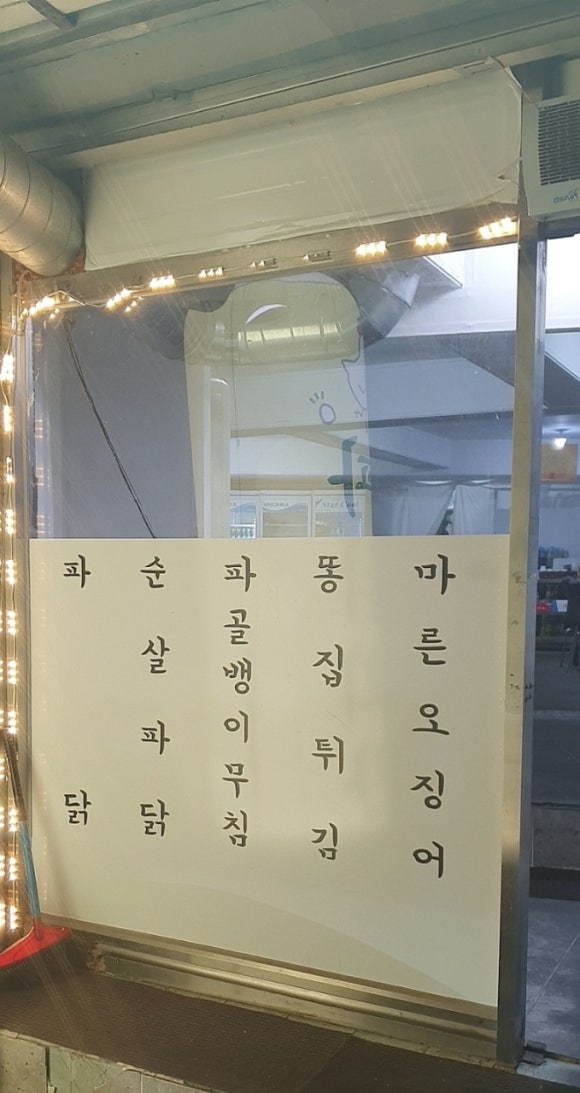 파닭
순살파닭
파골뱅이무침
똥집튀김
마른오징어
Star Cool